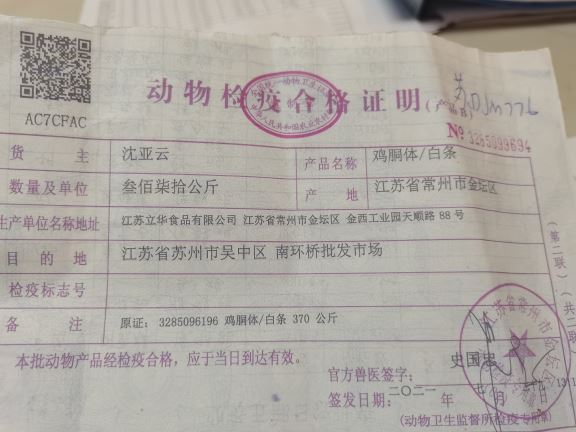 动物检疫合格证明(产品B)
AC7CFAC
№ 3285099694
货主 沈亚云 产品名称 鸡胴体/白条
数量及单位 叁佰柒拾公斤 产地 江苏省常州市金坛区
生产单位名称地址 江苏立华食品有限公司 江苏省常州市金坛区 金西工业园天顺路 88 号
目的地 江苏省苏州市吴中区 南环桥批发市场
检疫标志号
备注 原证: 3285096196 鸡胴体/白条 370 公斤
本批动物产品经检疫合格,应于当日到达有效。
官方兽医签字: 史国忠
签发日期: 二〇二一 年 月 日
(动物卫生监督所检疫专用章)
(第二联)